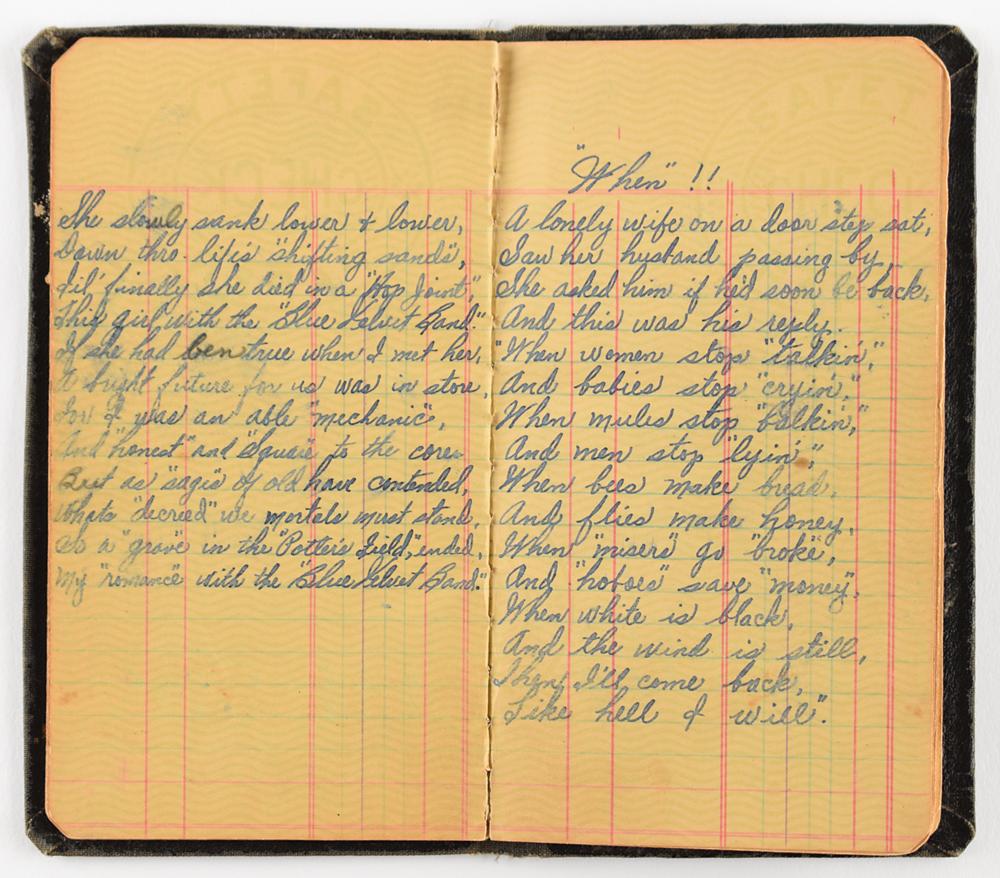 She slowly sank lower & lower,
Down thro. life's "shifting sands",
Til' finally she died in a "Hop Joint",
This girl with the "Blue Velvet Band."
If she had ben true when I met her,
A bright future for us was in store,
For I was an able "mechanic",
And "honest" and "square" to the core.
But as "sages" of old have contended,
Whats "decreed" we mortals must stand,
So a "grave" in the "Potter's Field", ended,
My "romance" with the "Blue Velvet Band."
"When" !!
A lonely wife on a door step sat,
Saw her husband passing by,
She asked him if he'd soon be back,
And this was his reply.
"When women stop "talkin',"
And babies stop "cryin',"
When mules stop "balkin',"
And men stop "lyin',"
When bees make bread,
And flies make honey,
When "misers" go "broke",
And "hoboes" save "money",
When white is black,
And the wind is still,
Then I'll come back,
Like hell I will".
SAFETY